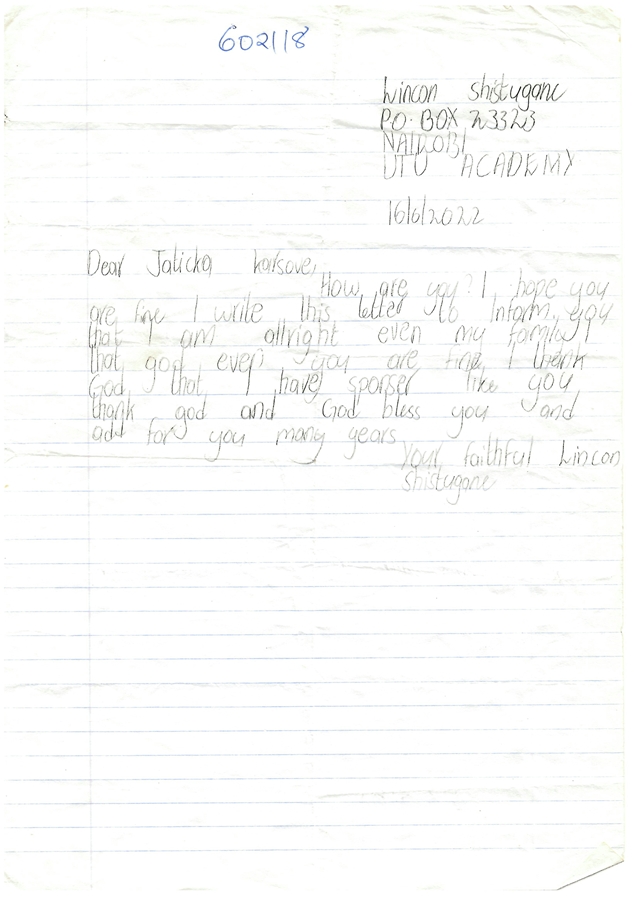 602118
Lincon Shistugane
P.O. BOX 23323
NAIROBI
UTU ACADEMY
16/6/2022
Dear Jalicka karsove,
How are you? I hope you
are fine I write this letter to inform you
that I am allright even my family I
that god even you are fine, I thank
God that I have sponser like you
thank god and God bless you and
add for you many years
Your faithful Lincon
Shistugane